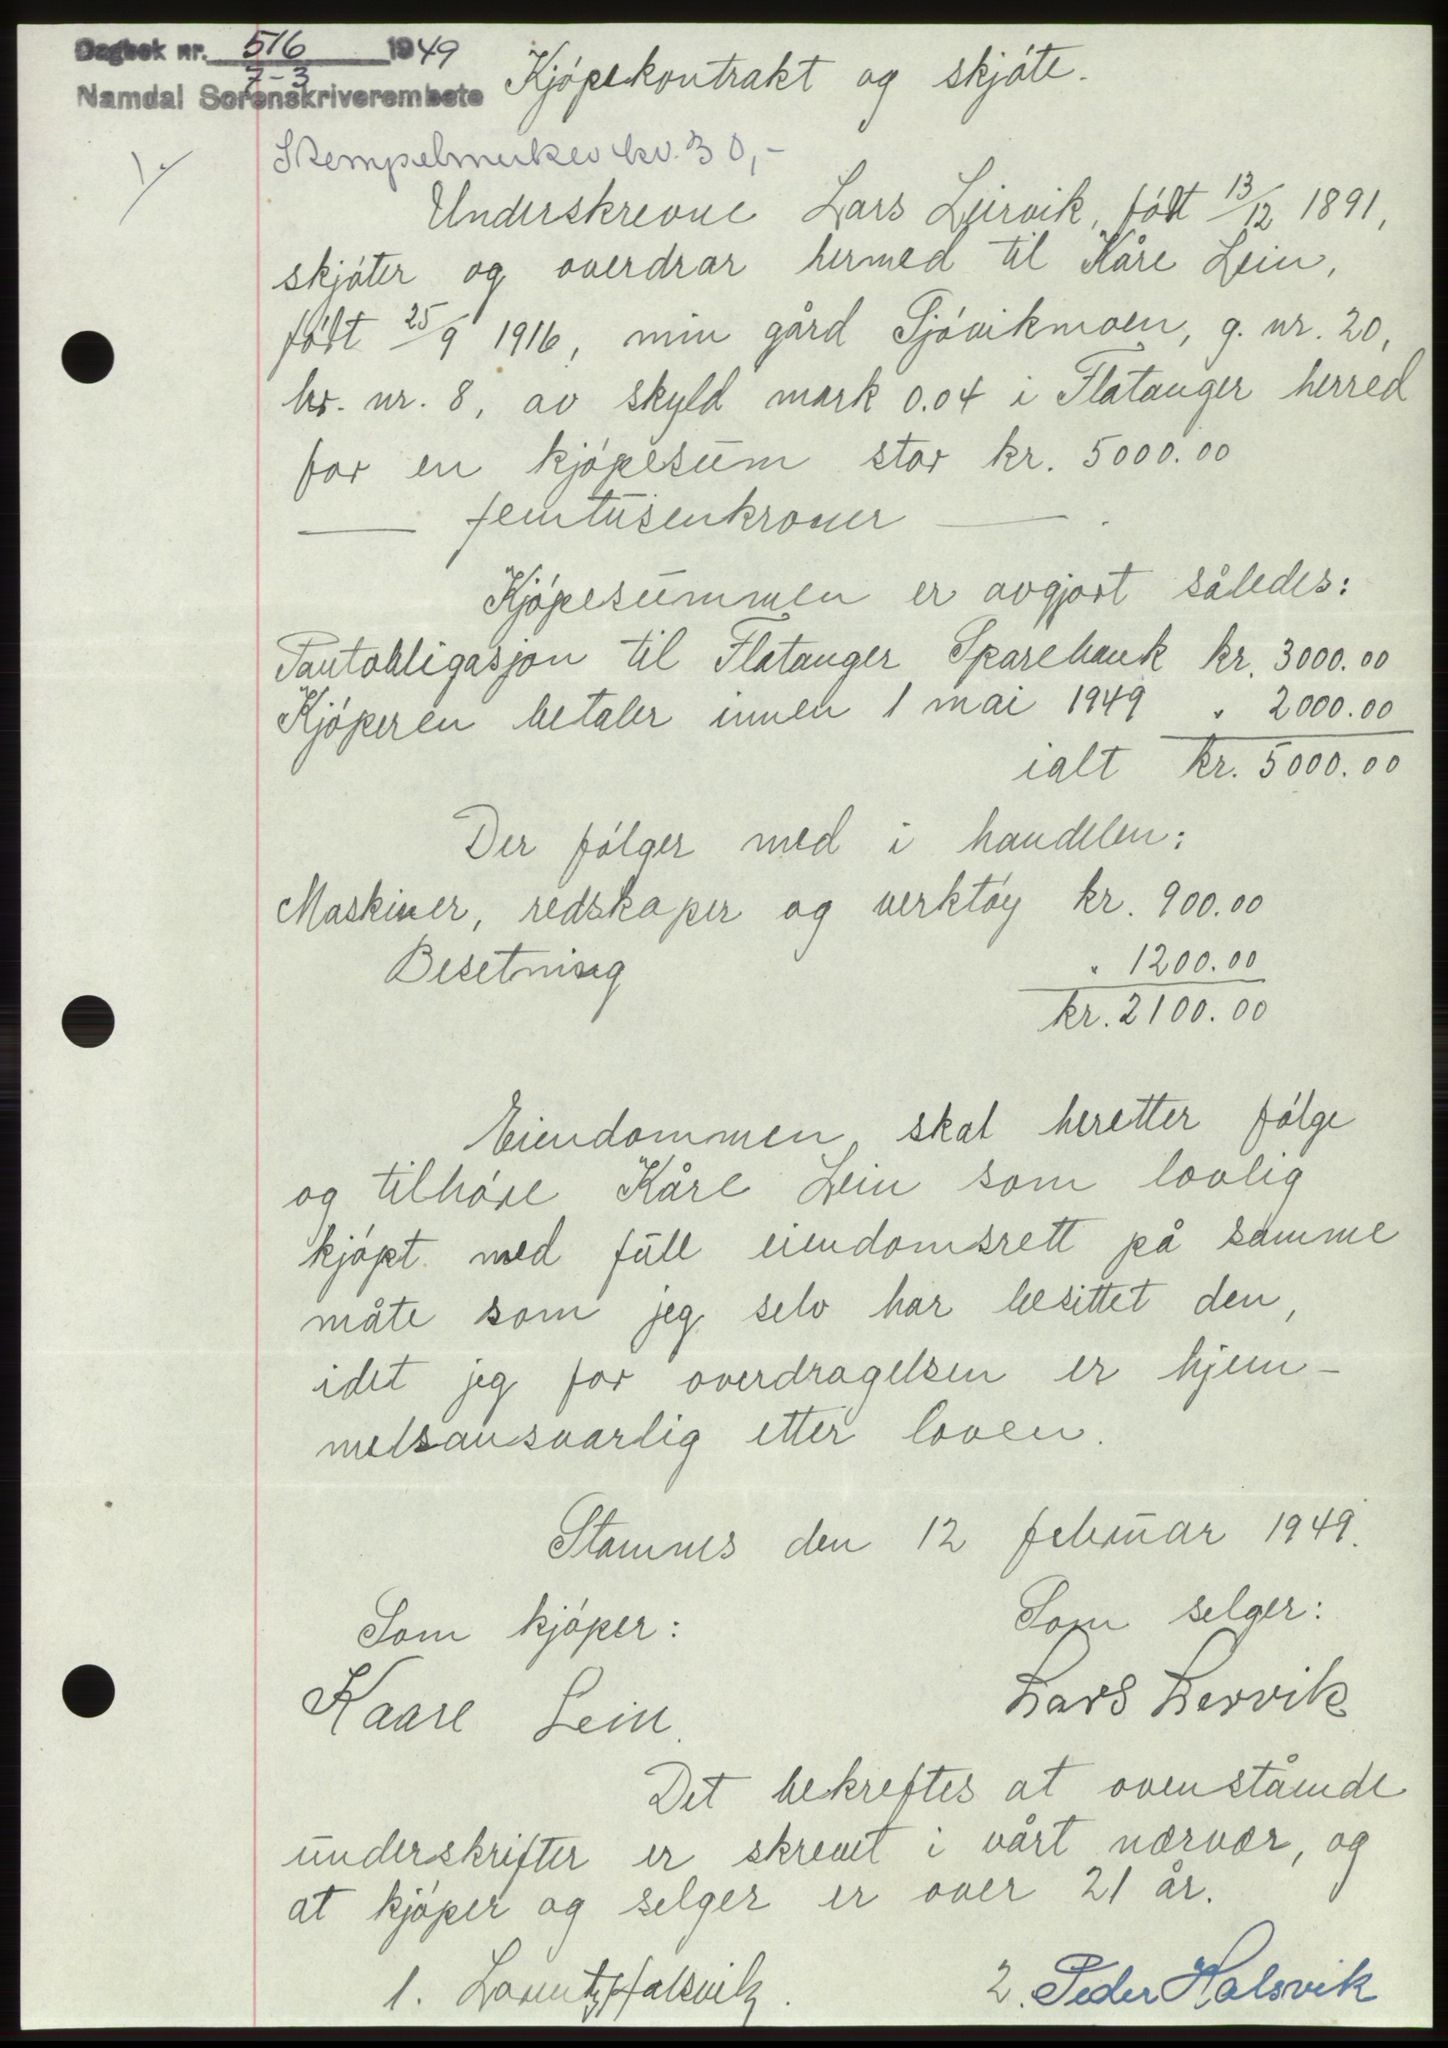 Dagbok nr. 516 1949
7-3
Namdal Sorenskriverembete
Kjópekontrakt og skjóte.
Stempelmerker kr. 30,-
Underskrevne Lars Leirvik, fódt 13/12 1891,
skjóter og overdrar hermed til Kåre Lein,
fódt 25/9 1916, min gård Sjóvikmoen, g. nr. 20,
br. nr. 8, av skyld mark 0.04 i Flatanger herred
for en kjópesum stor kr. 5000.00
— femtusenkroner — .
Kjópesummen er avgjort således:
Pantobligasjon til Flatanger Sparebank kr. 3000.00
Kjóperen betaler innen 1 mai 1949 " 2000.00
ialt kr. 5000.00
Der fólger med i handelen:
Maskiner, redskaper og verktóy kr. 900.00
Besetning " 1200.00
kr. 2100.00
Eiendommen skal heretter fólge
og tilhóre Kåre Lein som lovlig
kjópt med full eiendomsrett på samme
måte som jeg selv har besittet den,
idet jeg for overdragelsen er hjem-
melsansvarlig etter loven.
Stamnes den 12 februar 1949.
Som kjóper: Som selger:
Kaare Lein. Lars Lervik
Det bekreftes at ovenstående
underskrifter er skrevet i vårt nærvær, og
at kjóper og selger er over 21 år.
1. Lorentz Halsvik. 2. Peder Halsvik